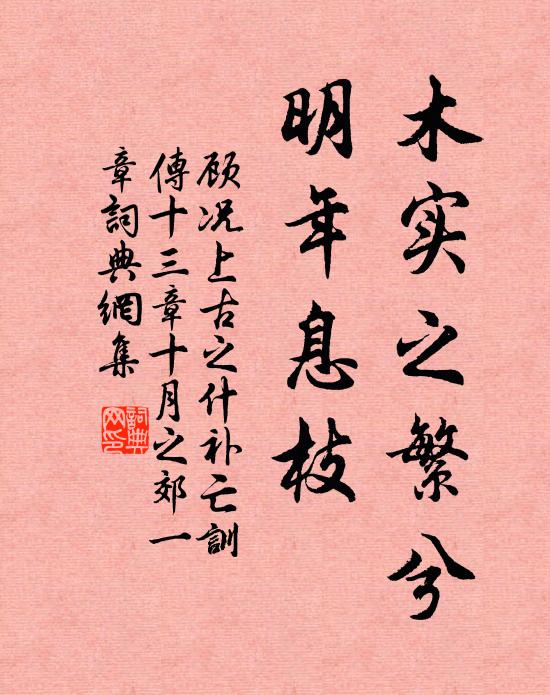 木实之繁兮
明年息枝
顾况上古之什补亡訓
傳十三章十月之郊一
章詞典網集
詞典
网印